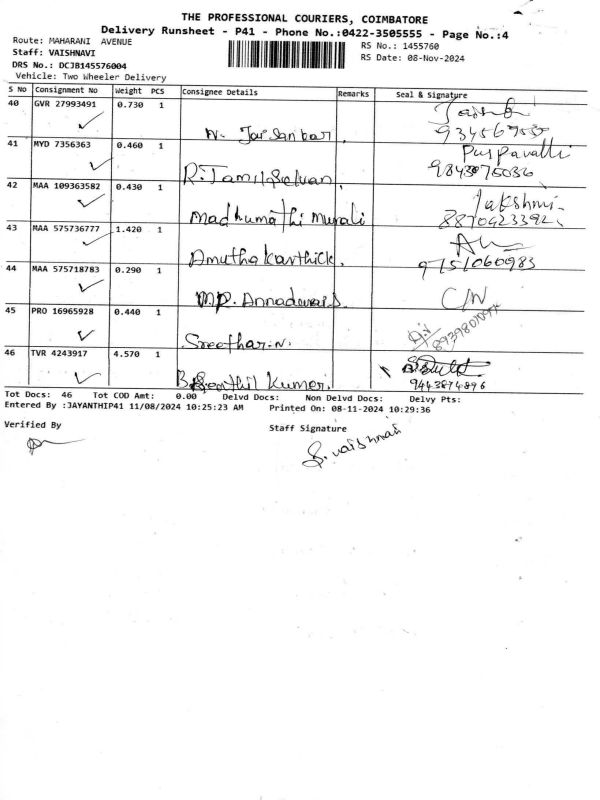 THE PROFESSIONAL COURIERS, COIMBATORE
Delivery Runsheet - P41 - Phone No.:0422-3505555 - Page No.:4
Route: MAHARANI AVENUE
RS No.: 1455760
Staff: VAISHNAVI
RS Date: 08-Nov-2024
DRS No.: DCJB145576004
Vehicle: Two Wheeler Delivery
S No Consignment No Weight PCS Consignee Details Remarks Seal & Signature
40 GVR 27993491 0.730 1
N. Jaisankar
41 MYD 7356363 0.460 1 Puspavalli
R. Tamilselvan. 9843075036
42 MAA 109363582 0.430 1 Lakshmi
Madhumathi Murali 8870423392
43 MAA 575736777 1.420 1
Amutha Karthick. 9751060983
44 MAA 575718783 0.290 1 C/N
MP. Annadurai.
45 PRO 16965928 0.440 1
Sreethar.N.
46 TVR 4243917 4.570 1
B. Senthil Kumar. 9443874896
Tot Docs: 46 Tot COD Amt: 0.00 Delvd Docs: Non Delvd Docs: Delvy Pts:
Entered By :JAYANTHIP41 11/08/2024 10:25:23 AM Printed On: 08-11-2024 10:29:36
Verified By
Staff Signature
S. Vaishnavi